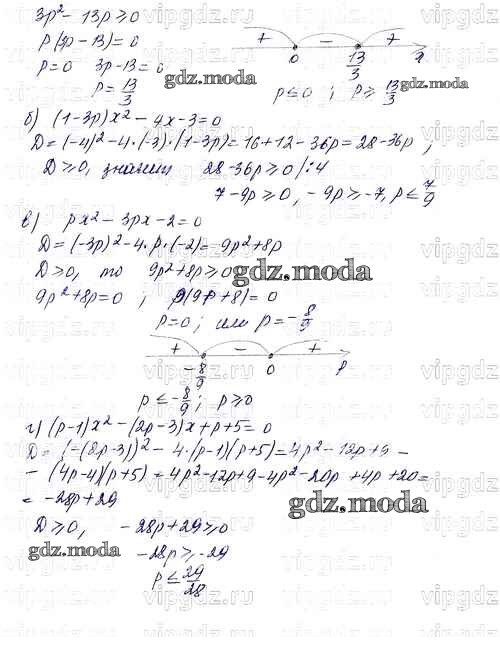 3p² - 13p ≥ 0
p(3p - 13) = 0
p = 0 3p - 13 = 0
p = 13/3
+ - +
0 13/3 p
p ≤ 0 ; p ≥ 13/3
gdz.moda
б) (1-3p)x² - 4x - 3 = 0
D = (-4)² - 4·(-3)·(1-3p) = 16 + 12 - 36p = 28 - 36p ;
D ≥ 0, значит 28 - 36p ≥ 0 /:4
7 - 9p ≥ 0, -9p ≥ -7, p ≤ 7/9
в) px² - 3px - 2 = 0
D = (-3p)² - 4·p·(-2) = 9p² + 8p
D ≥ 0, то 9p² + 8p ≥ 0
gdz.moda
9p² + 8p = 0 ; p(9p + 8) = 0
p = 0 ; или p = -8/9
+ - +
-8/9 0 p
p ≤ -8/9 ; p ≥ 0
г) (p-1)x² - (2p-3)x + p + 5 = 0
D = (-(2p-3))² - 4·(p-1)(p+5) = 4p² - 12p + 9 -
- (4p-4)(p+5) = 4p² - 12p + 9 - 4p² - 20p + 4p + 20 =
= -28p + 29
gdz.moda
D ≥ 0, -28p + 29 ≥ 0
gdz.moda
-28p ≥ -29
p ≤ 29/28
vipgdz.ru